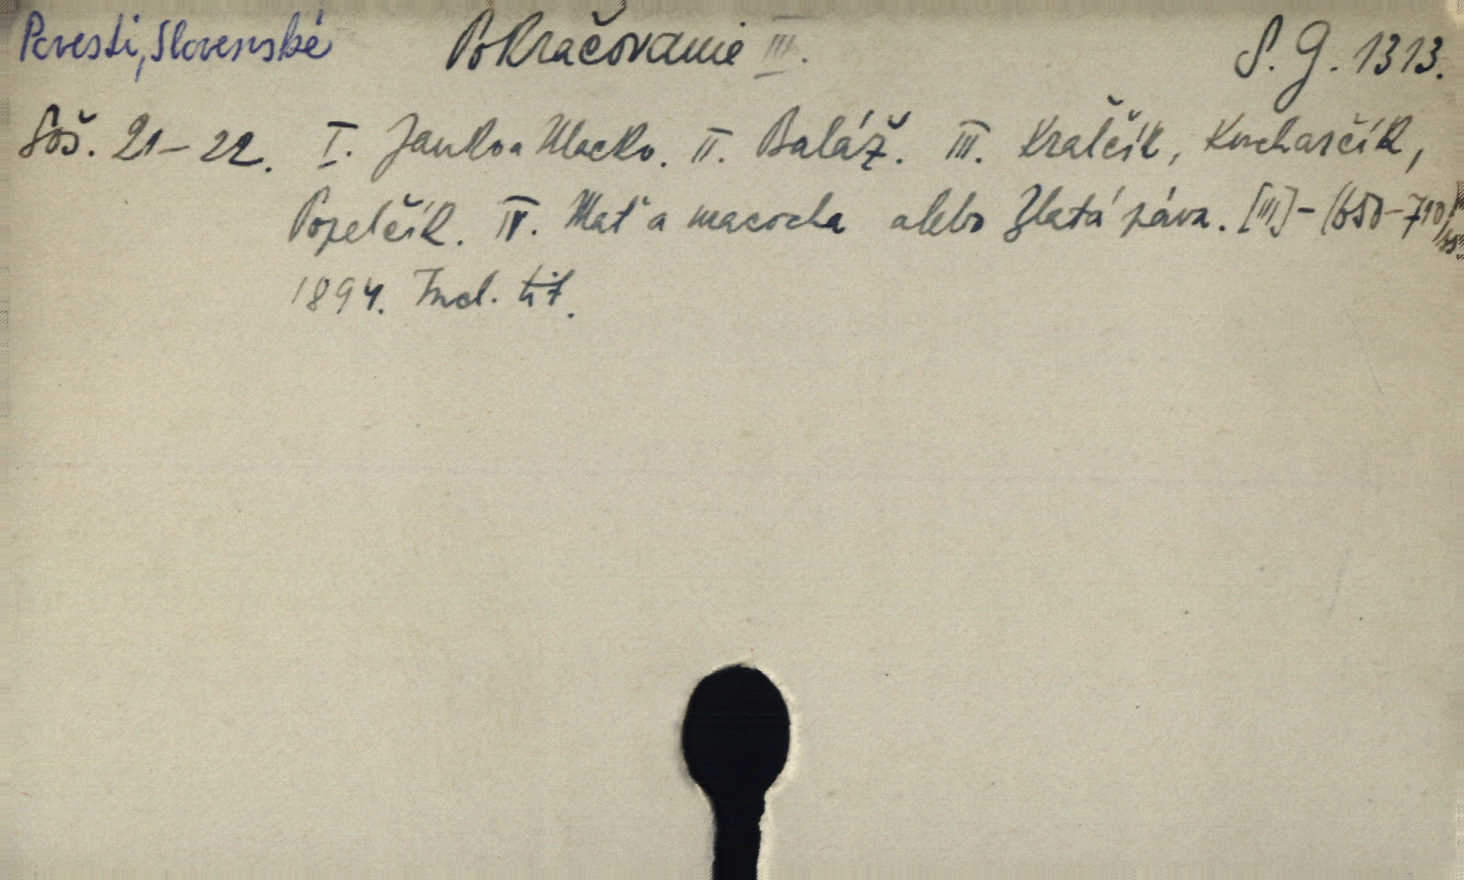 Povesti, Slovenské Pokračovanie III. S. G. 1313.
Soš. 21-22. I. Janko a Macko. II. Baláž. III. Kralčík, Kucharčík,
Popelčík. IV. Mať a macocha alebo Zlatá páva. [III]-(650-710)
1894. Incl. tit.